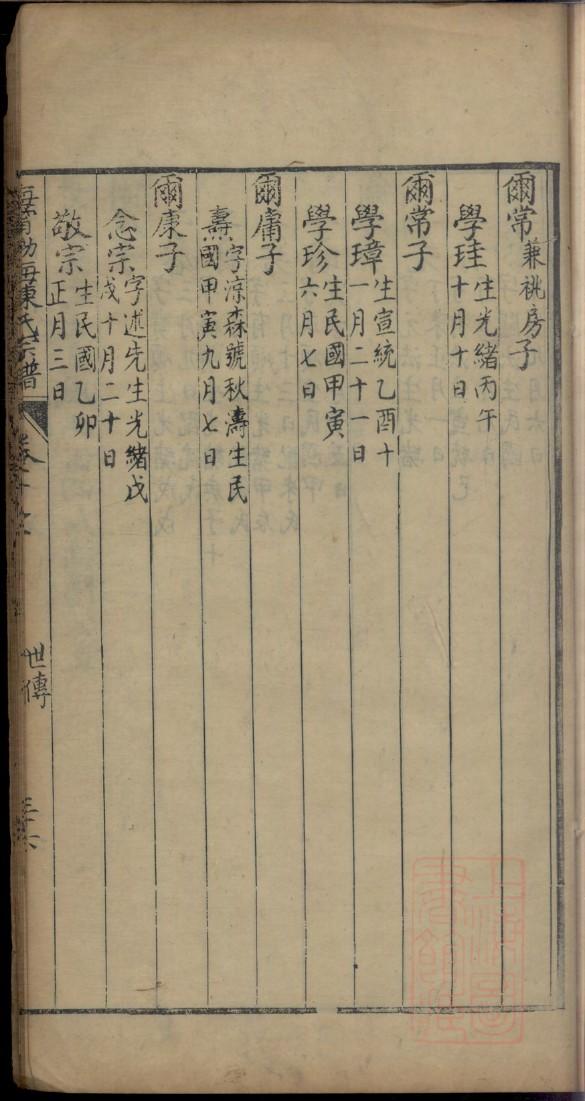 爾常兼祧房子
學珪生光緒丙午
十月十日
爾常子
學璋生宣統乙酉十
一月二十一日
學珍生民國甲寅
六月七日
爾庸子
燾字涼森號秋濤生民
國甲寅九月七日
爾康子
念宗字述先生光緒戊
戌十月二十日
敬宗生民國乙卯
正月三日
陳氏宗譜
世傳